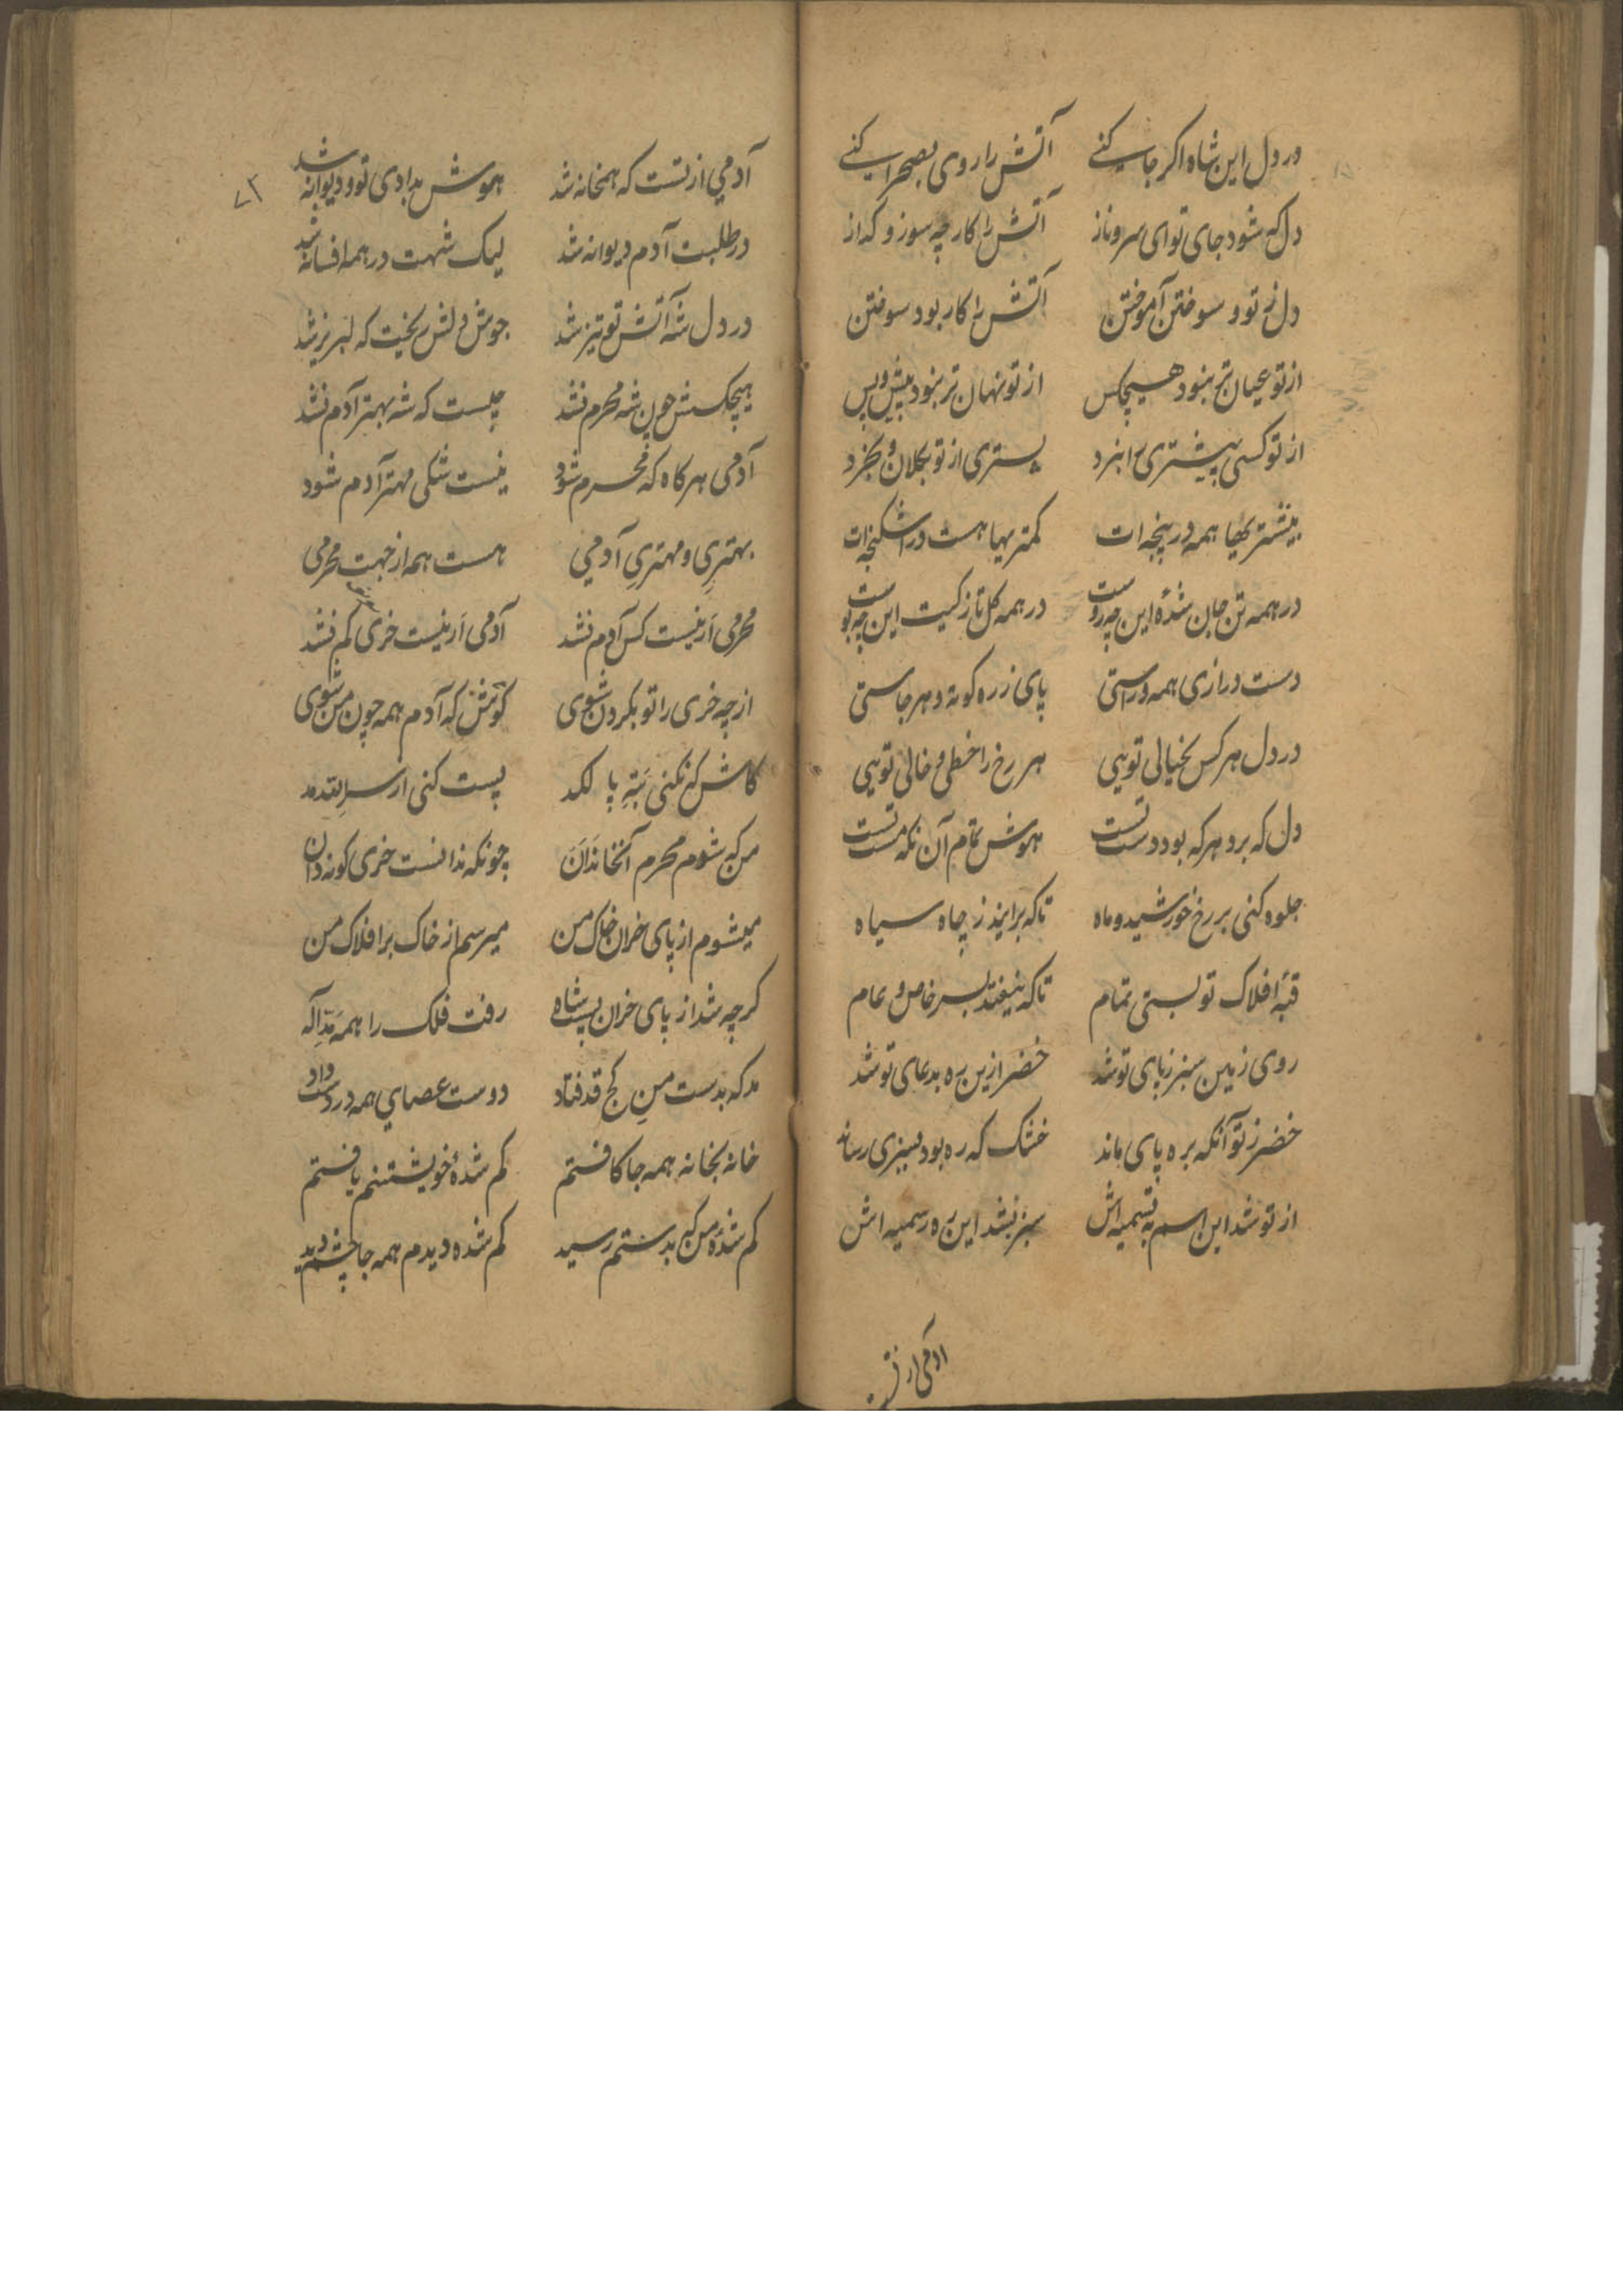 در دل این شاه اکر جا کنے آتش را روی بصحرا کنے
دل که شود جای تو ای سرو ناز آتش را کار چه سوز و کداز
دل ز تو و سوختن آموختن آتش را کار بود سوختن
از تو عیان تر نبود هیچکس از تو نهان تر نبود پیش و پس
از تو کسی پیشتری را نبرد پستری از تو کلان و خرد
بیشتریها همه در پنجه ات کمتریها هست در اشکنجه ات
در همه تن جان شدهٔ این چه روست در همه کل تازکیت این چه بوست
دست درازی همه در راستی پای ز ره کوته و هر جاستی
در دل هر کس بخیالی تویی هر رخ را خطی و خالی تویی
دل که برو هر که بود دست تست هوش تمام آن نکه مست تست
جلوه کنی بر رخ خورشید و ماه تا که برایند ز چاه سیاه
قبهٔ افلاک تو بستی تمام تا که نیفتد بسر خاص و عام
روی زمین سبز ز پای تو شد خضر ازین ره بدعای تو شد
خضر ز تو آنکه بره پای ماند خشک که ره بود بسبزی رساند
از تو شد این اسم به تسمیه اش سبز نشد این ره رسمیه اش
آدمی از تست
۷۳
آدمی از تست که همخانه شد هوش بدادی تو و دیوانه شد
در طلبت آدم دیوانه شد لیک شهت در همه افسانه شد
در دل شه آتش تو تیز شد جوش دلش ریخت که لبریز شد
هیچکسش چون شه محرم نشد چیست که شه بهتر آدم نشد
آدمی هر کاه که محرم شود نیست شکی مهتر آدم شود
بهتری و مهتری آدمی هست همه از جهت محرمی
محرمی ار نیست کس آدم نشد آدمی ار نیست خری کم نشد
از چه خری را تو بکردن شوی کوش که آدم همه چون من شوی
کاش که نکنی ته پا لکد پست کنی از سر
من که شوم محرم آنخاندان چونکه ندانست خری کونه دان
میشوم از پای خران خاک من میرسم از خاک بر افلاک من
کرچه شد از پای خران پست شاه رفت فلک را همه مد اله
مد که بدست من کج قد فتاد دوست عصای همه در دست داد
خانه بخانه همه جا کافتم کم شدهٔ خویشتنم یافتم
کم شدهٔ من که بدستم رسید کم شده دیدم همه جا چشم دید